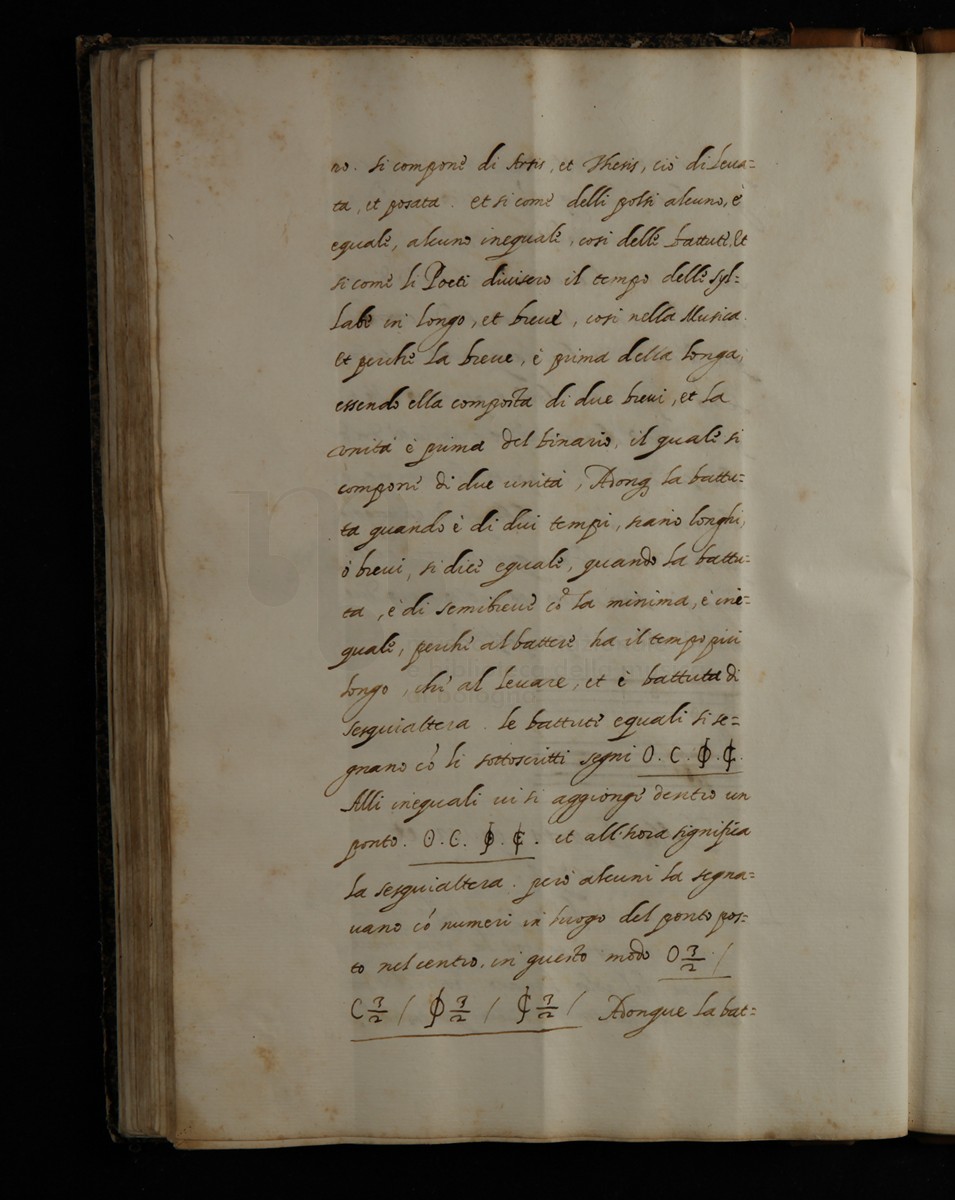 no. si compone di Artis, et Thesis, ciò di leua=
ta, et posata. Et si come delli polsi alcuno, è
equale, alcuno inequale, cosi delle battute. Et
si come li Poeti divisero il tempo delle syl=
labe in longo, et breue, cosi nella Musica.
Et perche la breue, è prima della longa,
essendo ella composta di due breui, et la
vnità è prima del binario, il quale si
compone di due unità, Adonq la battu=
ta quando è di dui tempi, siano longhi,
ò breui, si dice equale, quando la battu=
ta, è di semibreue cō la minima, è ine=
quale, perche al battere ha il tempo più
longo, che al leuare, et è battuta di
sesquialtera. Le battute equali si se=
gnano cō li sottoscritti segni O. C. Ф. ¢.
Alli inequali ui si aggionge dentro un
ponto. ʘ. C. Ф. ¢. et all'hora significa
la sesquialtera. però alcuni la segna=
uano cō numeri in luogo del ponto pos=
to nel centro, in questo modo O 3/2 /
C 3/2 / Ф 3/2 / ¢ 3/2 / Adonque la bat=